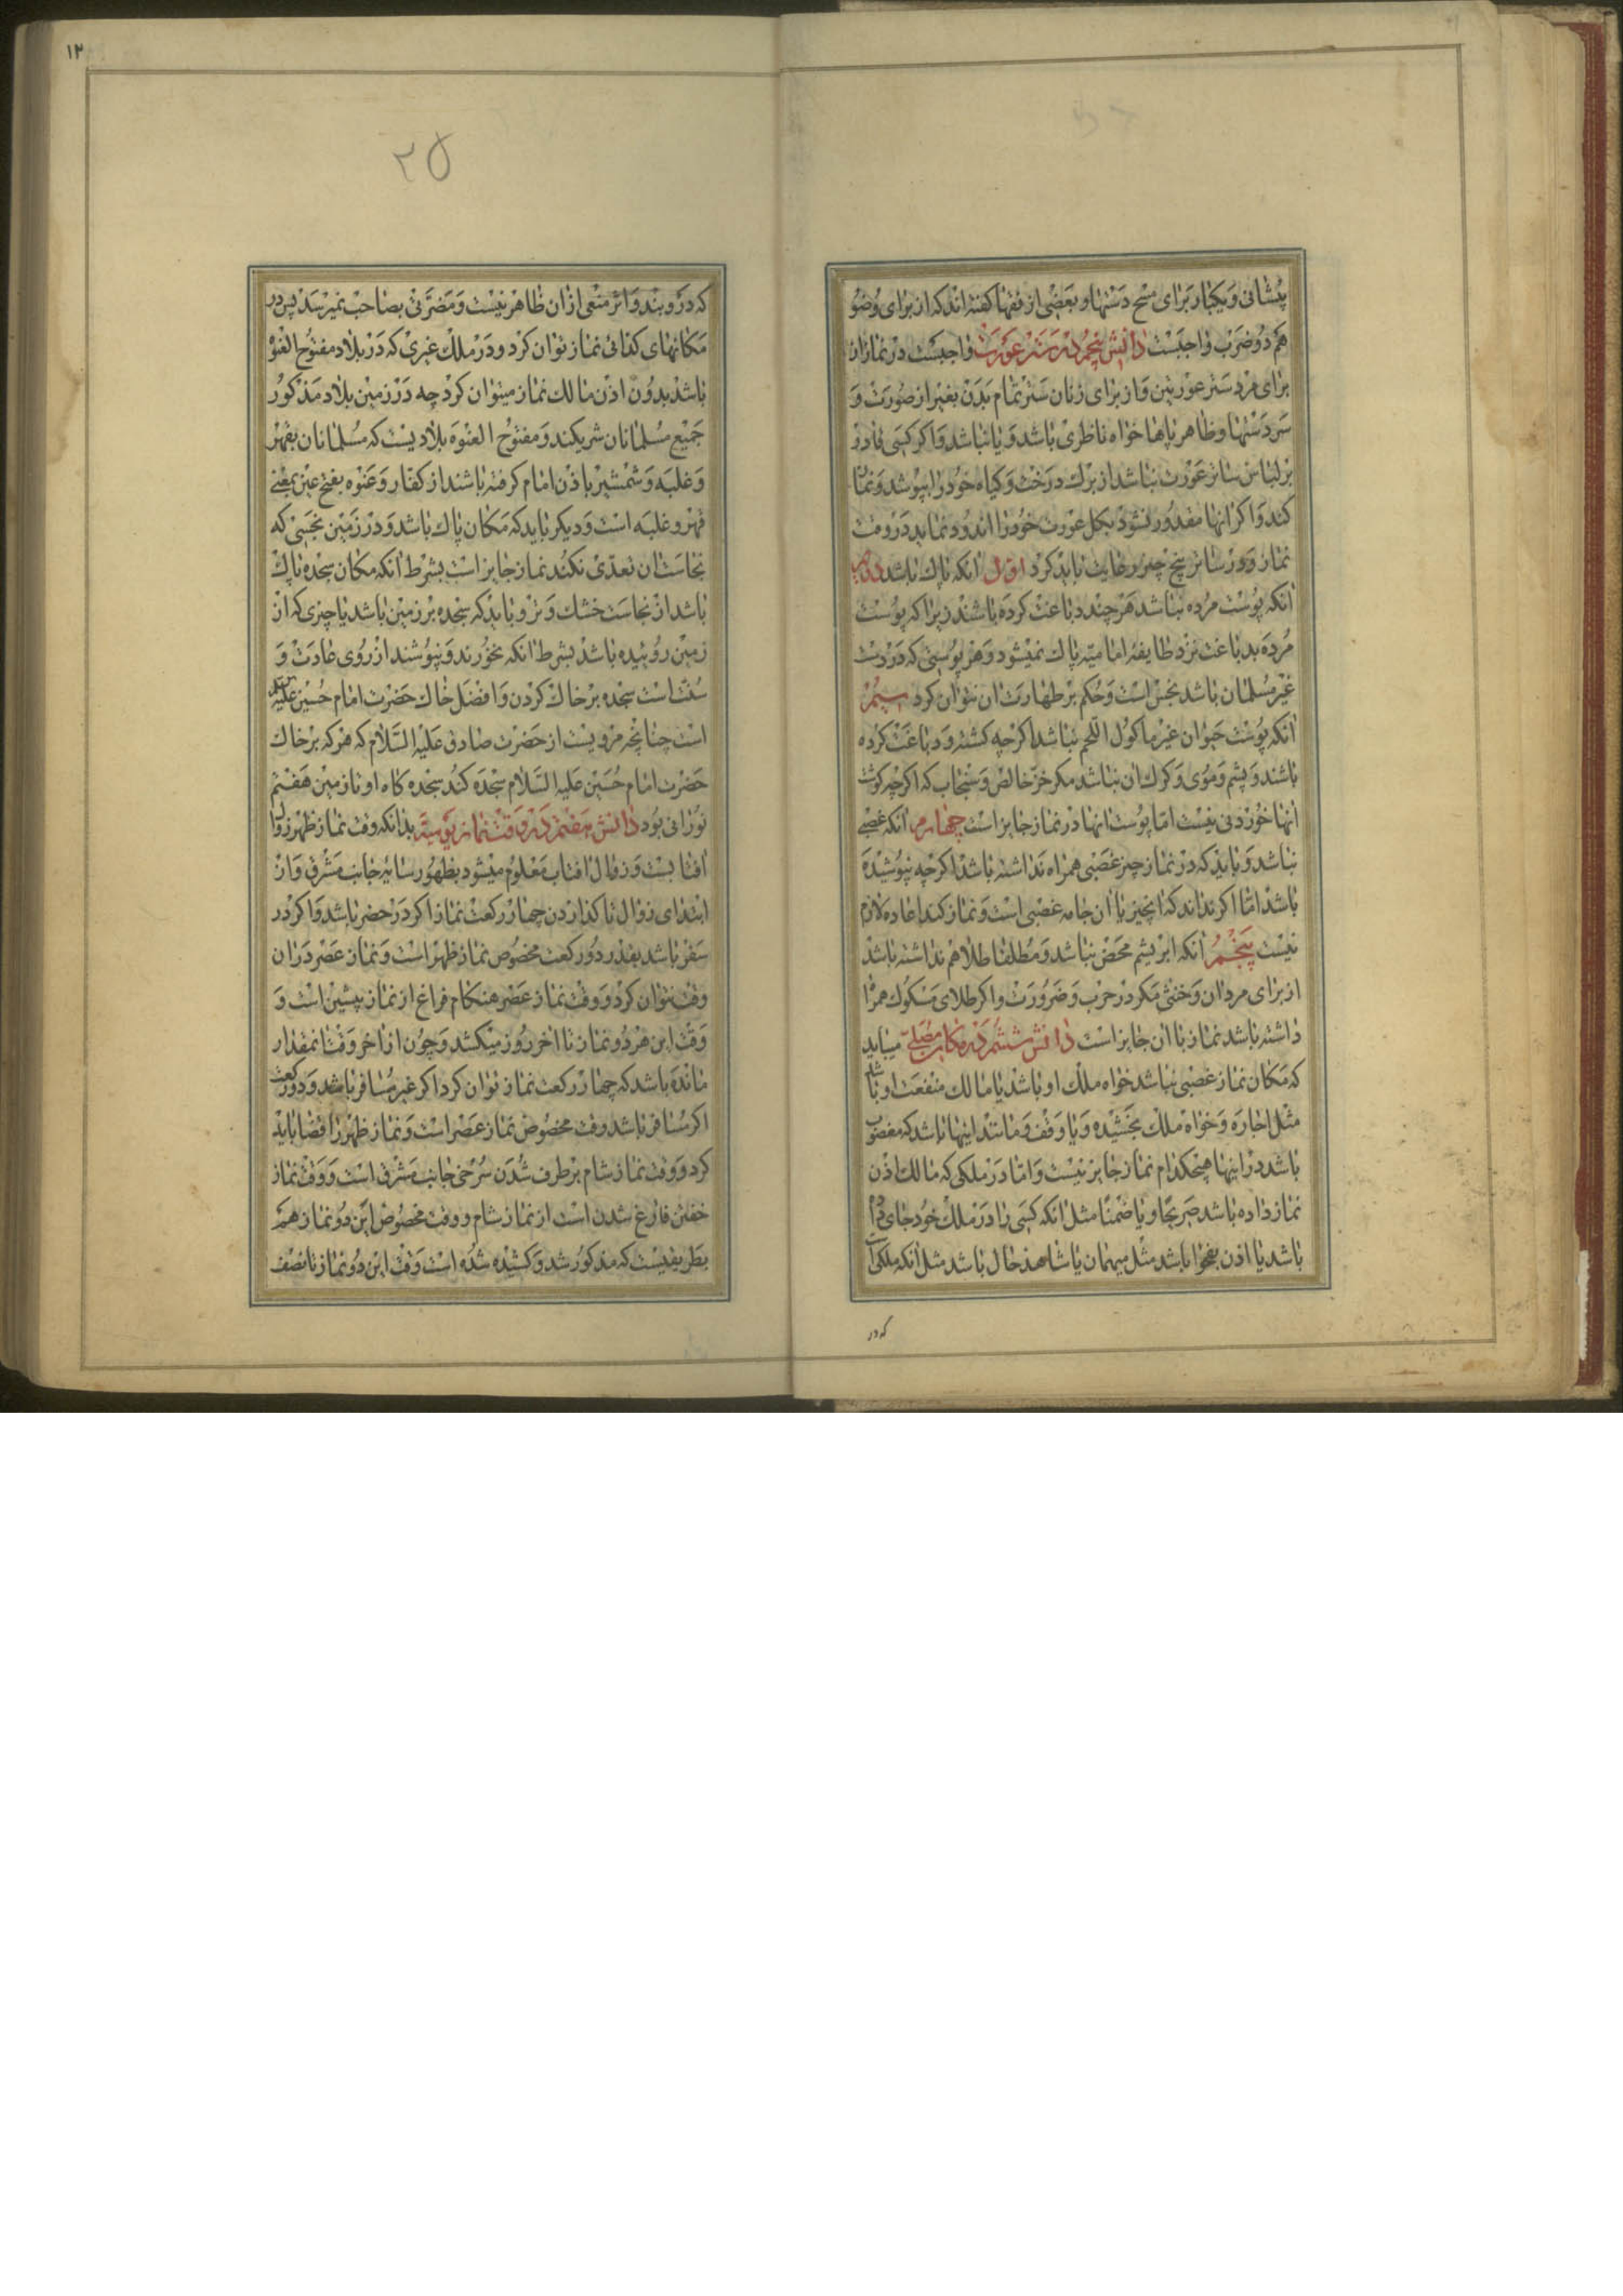 پیشانی و یکبار برای مسح دستها و بعضی از فقها کفته اند که از برای وضو
هم دو ضرب واجبست دانش پنجم در ستر عورت واجبست در نماز از
برای مرد ستر عورتین و از برای زنان ستر تمام بدن بغیر از صورت و
سر دستها و ظاهر پاها خواه ناظری باشد و یا نباشد و اکر کسی قادر
بر لباس ساتر عورت نباشد از برک درخت و کیاه خود را بپوشد و نماز
کند و اکر انها مقدور نشود بکل عورت خود را اندود نماید در وقت
نماز و در ساتر پنج چیز رعایت باید کرد اول انکه پاک باشد دویم
انکه پوست مرده نباشد هر چند دباغت کرده باشند زیرا که پوست
مرده بدباغت نزد طایفه امامیه پاک نمیشود و هر پوستی که در دست
غیر مسلمان باشد نجس است و حکم بر طهارت ان نتوان کرد سیم
انکه پوست حیوان غیر ماکول اللحم نباشد اکرچه کشته و دباغت کرده
باشند و پشم و موی و کرک ان نباشد مکر خز خالص و سنجاب که اکرچه کوشت
انها خوردنی نیست اما پوست انها در نماز جایز است چهارم انکه غصبی
نباشد و باید که در نماز چیز غصبی همراه نداشته باشد اکرچه نپوشیده
باشد اما اکر نداند که انچیز یا ان جامه غصبی است و نماز کند اعاده لازم
نیست پنجم انکه ابریشم محض نباشد و مطلقا طلا هم نداشته باشد
از برای مردان و خنثی مکر در حرب و ضرورت و اکر طلای مسکوک همراه
داشته باشد نماز با ان جایز است دانش ششم در مکان مصلی میباید
که مکان نماز غصبی نباشد خواه ملک او باشد یا مالک منفعت او باشد
مثل اجاره و خواه ملک بخشیده و یا وقف و مانند اینها باشد که مغصوب
باشد در اینها هیچکدام نماز جایز نیست و اما در ملکی که مالک اذن
نماز داده باشد صریحا و یا ضمنا مثل انکه کسی را در ملک خود جای داده
باشد یا اذن بفحوا باشد مثل میهمان یا شاهد حال باشد مثل انکه ملکی است
که در
۱۲
۲۵
که در و بند و اثر منعی از ان ظاهر نیست و مضرتی بصاحب نمیرسد پس در
مکانهای کذائی نماز توان کرد و در ملک غیری که در بلاد مفتوح العنوه
باشد بدون اذن مالک نماز میتوان کرد چه در زمین بلاد مذکور
جمیع مسلمانان شریکند و مفتوح العنوه بلادیست که مسلمانان بقهر
و غلبه و شمشیر باذن امام کرفته باشند از کفار و عنوه بفتح عین بمعنی
قهر و غلبه است و دیکر باید که مکان پاک باشد و در زمین نجسی که
نجاست ان تعدی نکند نماز جایز است بشرط انکه مکان سجده پاک
باشد از نجاست خشک و تر و باید که سجده بر زمین باشد یا چیزی که از
زمین روئیده باشد بشرط انکه نخورند و نپوشند از روی عادت و
سنت است سجده بر خاک کردن و افضل خاک حضرت امام حسین علیه
است چنانچه مرویست از حضرت صادق علیه السلام که هر که بر خاک
حضرت امام حسین علیه السلام سجده کند سجده کاه او تا زمین هفتم
نورانی بود دانش هفتم در وقت نماز یومیه بدانکه وقت نماز ظهر زوال
افتابست و زوال افتاب معلوم میشود بظهور سایه جانب مشرق و از
ابتدای زوال تا کذاردن چهار رکعت نماز اکر در حضر باشد و اکر در
سفر باشد بقدر دو رکعت مخصوص نماز ظهر است و نماز عصر در ان
وقت نتوان کرد و وقت نماز عصر هنکام فراغ از نماز پیشین است و
وقت این هر دو نماز تا اخر روز میکشد و چون از اخر وقت انمقدار
مانده باشد که چهار رکعت نماز توان کرد اکر غیر مسافر باشد و دو رکعت
اکر مسافر باشد وقت مخصوص نماز عصر است و نماز ظهر را قضا باید
کرد و وقت نماز شام برطرف شدن سرخی جانب مشرق است و وقت نماز
خفتن فارغ شدن است از نماز شام و وقت مخصوص این دو نماز هم
بطریقیست که مذکور شد و کشیده شده است وقت این دو نماز تا نصف